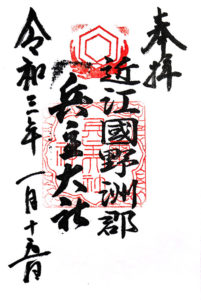 奉拝
近江國野洲郡
兵主大社
令和三年一月十五日